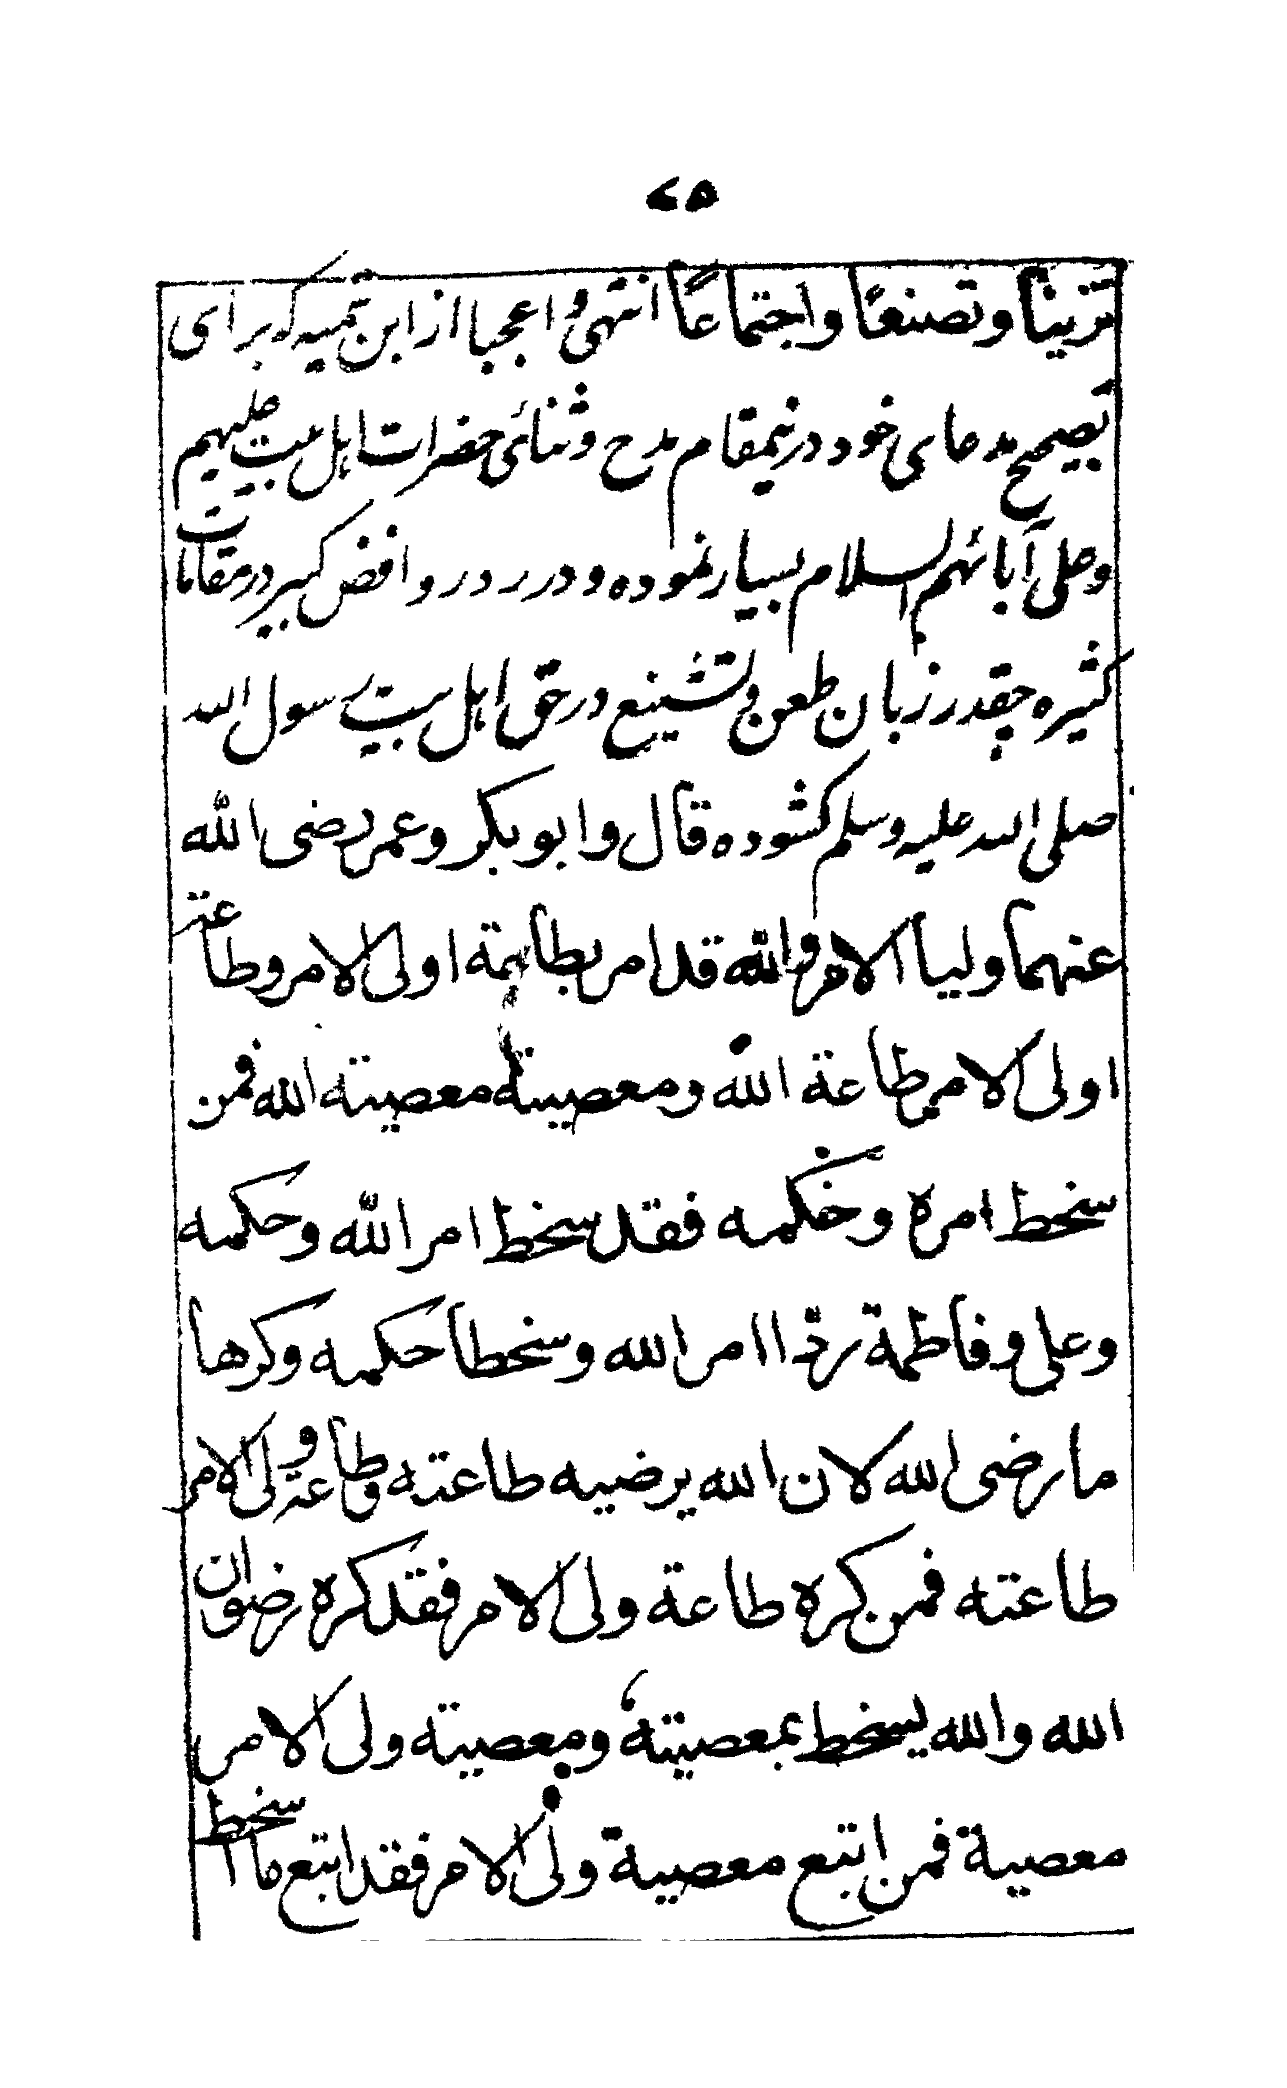 ٧٥
تزينًا وتصنعًا واجتماعًا انتهى واعجبا از ابن تیمیه که برای
تصیح مدعای خود درینمقام مدح و ثنائی حضرات اهل بیت علیهم
وعلی آبائهم السلام بسیار نموده و در رد روافض کبیر در مقامات
کثیره چقدر زبان طعن و تشنیع در حق اهل بیت رسول الله
صلی الله علیه وسلم کشوده قال وابو بكر وعمر رضى الله
عنهما وليا الامر والله قد امر بطاعة اولى الامر وطاعة
اولى الامر طاعة الله ومعصيته معصيته الله فمن
سخط امره وحكمه فقد سخط امر الله وحكمه
وعلى وفاطمة ردا امر الله وسخطا حكمه وكرها
ما رضى الله لان الله يرضيه طاعته وطاعة ولى الامر
طاعته فمن كره طاعة ولى الامر فقد كره رضوان
الله والله يسخط بمعصيتة ومعصيتة ولى الامر
معصية فمن اتبع معصية ولى الامر فقد اتبع ما اسخط